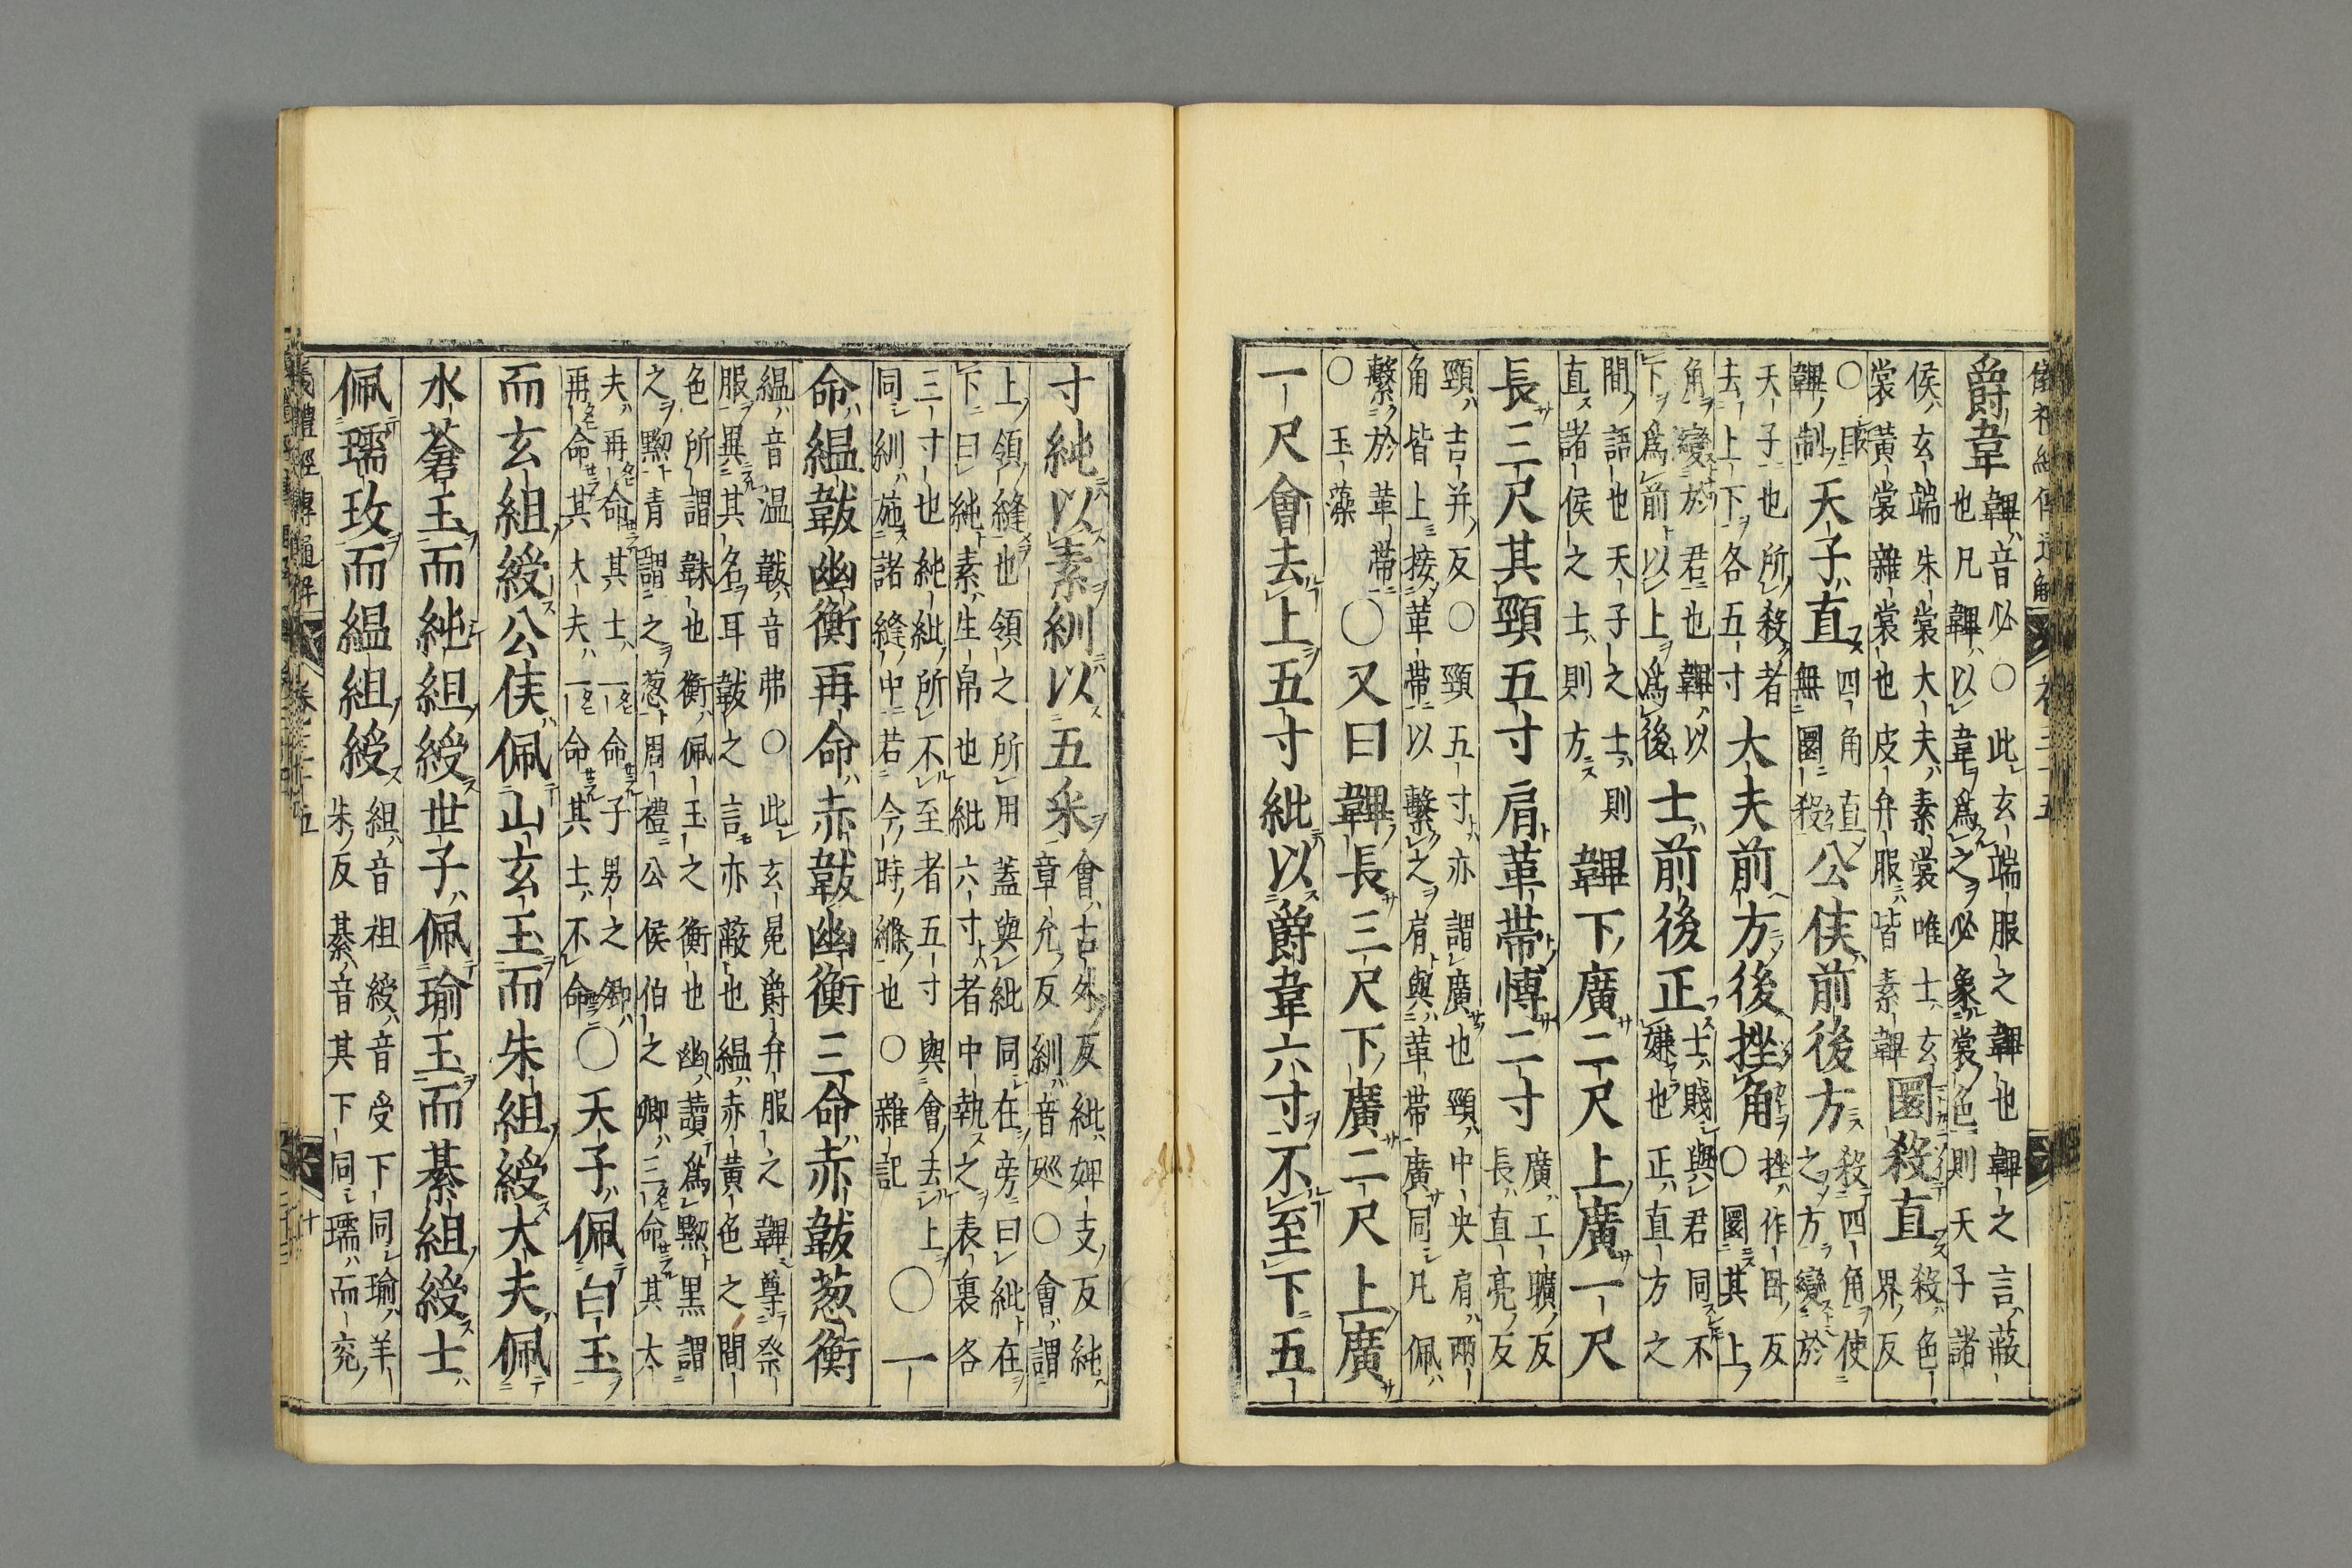 爵韋韠音必○此玄端服之韠也韠之言蔽
也凡韠以韋爲之必象裳色則天子諸
侯玄端朱裳大夫素裳唯士玄
裳黃裳雜裳也皮弁服皆素韠圜殺直殺色
界反
○目
韠制天子直四角直
無圜殺公侯前後方殺四角使
之方變於
天子也所殺者
去上下各五寸大夫前方後挫角挫作臥反
○圜其上
角變於君也韠以
下爲前以上爲後士前後正士賤與君同不
嫌也正直方之
間語也天子之士則
直諸侯之士則方韠下廣二尺上廣一尺
長三尺其頸五寸肩革帶博二寸廣工曠反
長直亮反
頸吉并反○頸五寸亦謂廣也頸中央肩兩
角皆上接革帶以繫之肩與革帶廣同凡佩
繫於革帶
○玉藻○又曰韠長三尺下廣二尺上廣
一尺會去上五寸紕以爵韋六寸不至下五
寸純以素紃以五采會古外反紕婢支反純
章允反紃音巡○會謂
上領縫也領之所用蓋與紕同在旁曰紕在
下曰純素生帛也紕六寸者中執之表裏各
三寸也純紕所不至者五寸與會去上
同紃施諸縫中若今時絛也○雜記○一
命縕韍幽衡再命赤韍幽衡三命赤韍葱衡
縕音温韍音弗○此玄冕爵弁服之韠尊祭
服異其名耳韍之言亦蔽也縕赤黃色之間
色所謂韎也衡佩玉之衡也幽讀爲黝黑謂
之黝青謂之葱周禮公侯伯之卿三命其大
夫再命其士一命子男之卿
再命其大夫一命其士不命○天子佩白玉
而玄組綬公侯佩山玄玉而朱組綬大夫佩
水蒼玉而純組綬世子佩瑜玉而綦組綬士
佩瓀玟而縕組綬組音祖綬音受下同瑜羊
朱反綦音其下同瓀而兗